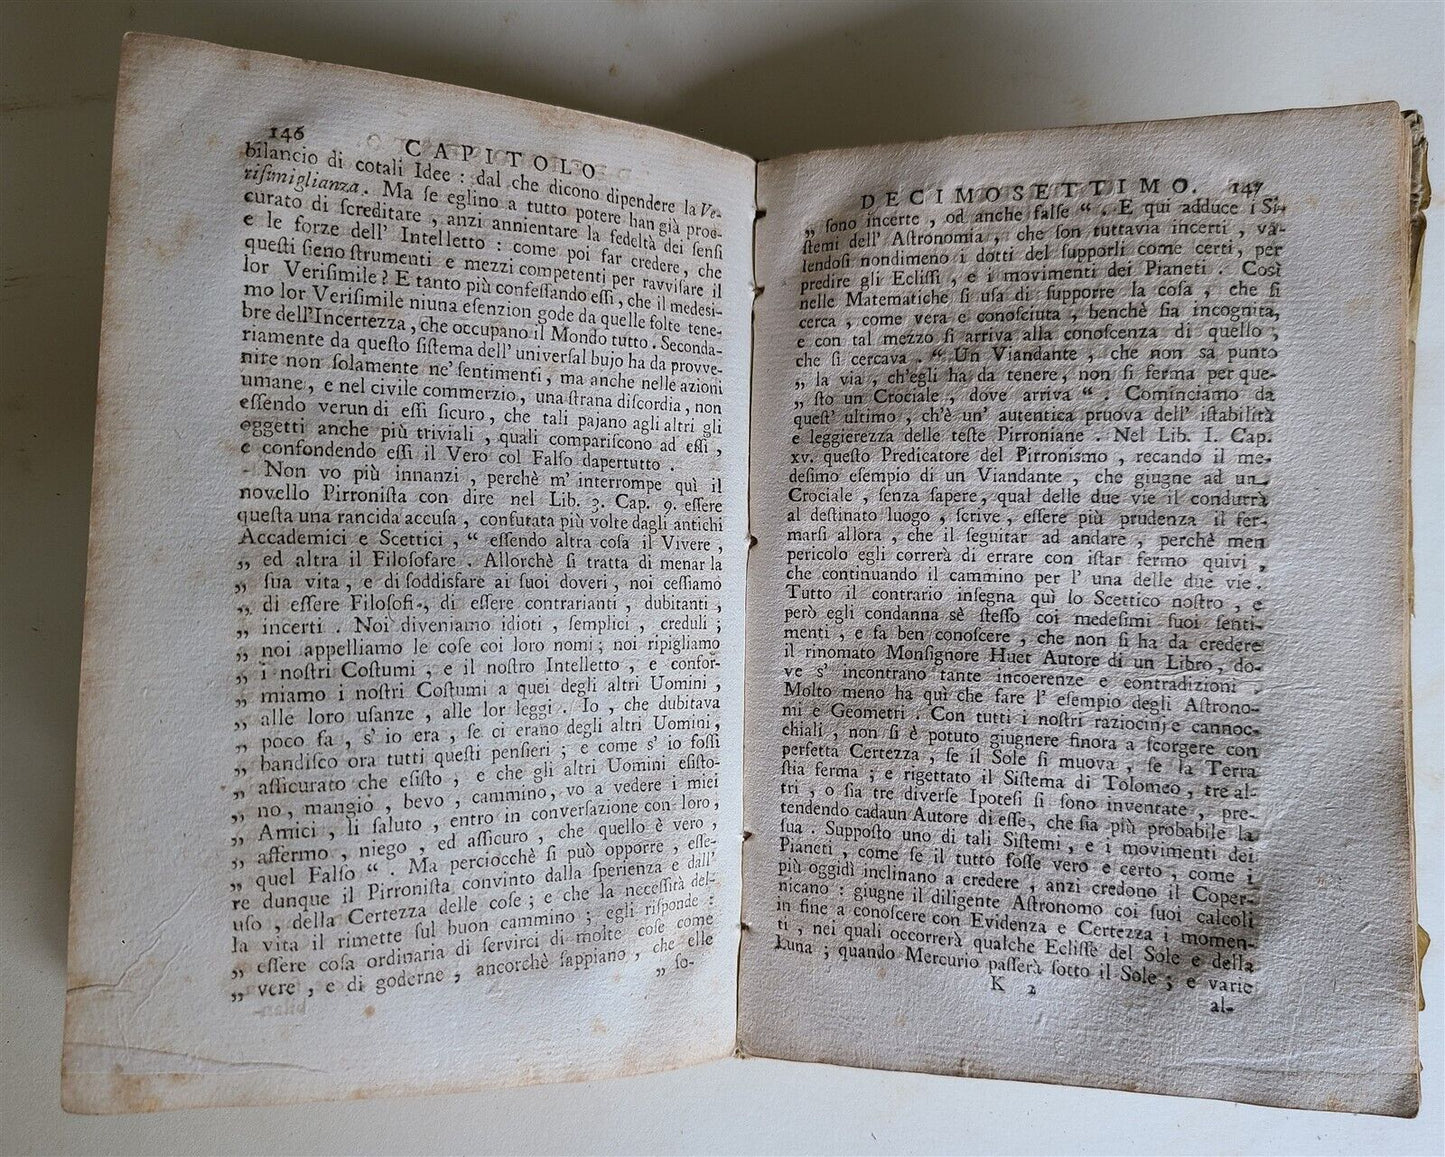 146
CAPITOLO
bilancio di cotali Idee : dal che dicono dipendere la Ve-
riſimiglianza. Ma ſe eglino a tutto potere han già proc-
curato di ſcreditare , anzi annientare la fedeltà dei ſenſi
e le forze dell' Intelletto : come poi far credere, che
queſti ſieno ſtrumenti e mezzi competenti per ravviſare il
lor Veriſimile? E tanto più confeſſando eſſi, che il medeſi-
mo lor Veriſimile niuna eſenzion gode da quelle folte tene-
bre dell'Incertezza, che occupano il Mondo tutto. Seconda-
riamente da queſto ſiſtema dell' univerſal bujo ha da provve-
nire non ſolamente ne' ſentimenti, ma anche nelle azioni
umane, e nel civile commerzio, una ſtrana diſcordia, non
eſſendo verun di eſſi ſicuro, che tali pajano agli altri gli
oggetti anche più triviali , quali compariſcono ad eſſi ,
e confondendo eſſi il Vero col Falſo dapertutto .
Non vo più innanzi , perchè m' interrompe quì il
novello Pirroniſta con dire nel Lib. 3. Cap. 9. eſſere
queſta una rancida accuſa , confutata più volte dagli antichi
Accademici e Scettici , “ eſſendo altra coſa il Vivere ,
„ ed altra il Filoſofare . Allorchè ſi tratta di menar la
„ ſua vita, e di ſoddisfare ai ſuoi doveri, noi ceſſiamo
„ di eſſere Filoſofi, di eſſere contrarianti , dubitanti ,
„ incerti . Noi diveniamo idioti , ſemplici , creduli ;
„ noi appelliamo le coſe coi loro nomi; noi ripigliamo
„ i noſtri Coſtumi , e il noſtro Intelletto , e confor-
„ miamo i noſtri Coſtumi a quei degli altri Uomini ,
„ alle loro uſanze , alle lor leggi . Io , che dubitava
„ poco fa , s' io era , ſe ci erano degli altri Uomini,
„ bandiſco ora tutti queſti penſieri ; e come s' io foſſi
„ aſſicurato che eſiſto , e che gli altri Uomini eſiſto-
„ no, mangio , bevo , cammino, vo a vedere i miei
„ Amici , li ſaluto , entro in converſazione con loro,
„ affermo , niego , ed aſſicuro , che quello è vero ,
„ quel Falſo “ . Ma perciocchè ſi può opporre , eſſe-
re dunque il Pirroniſta convinto dalla ſperienza e dall'
uſo , della Certezza delle coſe ; e che la neceſſità del-
la vita il rimette ſul buon cammino ; egli riſponde :
„ eſſere coſa ordinaria di ſervirci di molte coſe come
„ vere , e di goderne , ancorchè ſappiano , che elle
„ ſo-
DECIMOSETTIMO. 147
„ ſono incerte , od anche falſe “ . E qui adduce i Si-
ſtemi dell' Aſtronomia , che ſon tuttavia incerti , va-
lendoſi nondimeno i dotti del ſupporli come certi, per
predire gli Eccliſſi , e i movimenti dei Pianeti . Così
nelle Matematiche ſi uſa di ſupporre la coſa , che ſi
cerca , come vera e conoſciuta , benchè ſia incognita,
e con tal mezzo ſi arriva alla conoſcenza di quello ,
che ſi cercava . “ Un Viandante , che non sa punto
„ la via , ch'egli ha da tenere, non ſi ferma per que-
„ ſto un Crociale , dove arriva “ . Cominciamo da
queſt' ultimo , ch'è un' autentica pruova dell' iſtabilità
e leggierezza delle teſte Pirroniane . Nel Lib. I. Cap.
xv. queſto Predicatore del Pirroniſmo , recando il me-
deſimo eſempio di un Viandante , che giugne ad un
Crociale , ſenza ſapere, qual delle due vie il condurrà
al deſtinato luogo , ſcrive, eſſere più prudenza il fer-
marſi allora , che il ſeguitar ad andare , perchè men
pericolo egli correrà di errare con iſtar fermo quivi ,
che continuando il cammino per l' una delle due vie .
Tutto il contrario inſegna quì lo Scettico noſtro , e
però egli condanna sè ſteſſo coi medeſimi ſuoi ſenti-
menti , e fa ben conoſcere , che non ſi ha da credere
il rinomato Monſignore Huet Autore di un Libro, do-
ve s' incontrano tante incoerenze e contradizioni ,
Molto meno ha quì che fare l' eſempio degli Aſtrono-
mi e Geometri . Con tutti i noſtri raziocinj e cannoc-
chiali , non ſi è potuto giugnere finora a ſcorgere con
perfetta Certezza , ſe il Sole ſi muova , ſe la Terra
ſtia ferma ; e rigettato il Siſtema di Tolomeo , tre al-
tri , o ſia tre diverſe Ipoteſi ſi ſono inventate , pre-
tendendo cadaun Autore di eſſe, che ſia più probabile la
ſua . Suppoſto uno di tali Siſtemi , e i movimenti dei
Pianeti , come ſe il tutto foſſe vero e certo , come i
più oggidì inclinano a credere , anzi credono il Coper-
nicano : giugne il diligente Aſtronomo coi ſuoi calcoli
in fine a conoſcere con Evidenza e Certezza i momen-
ti , nei quali occorrerà qualche Ecliſſe del Sole e della
Luna ; quando Mercurio paſſerà ſotto il Sole ; e varie
K 2
al-